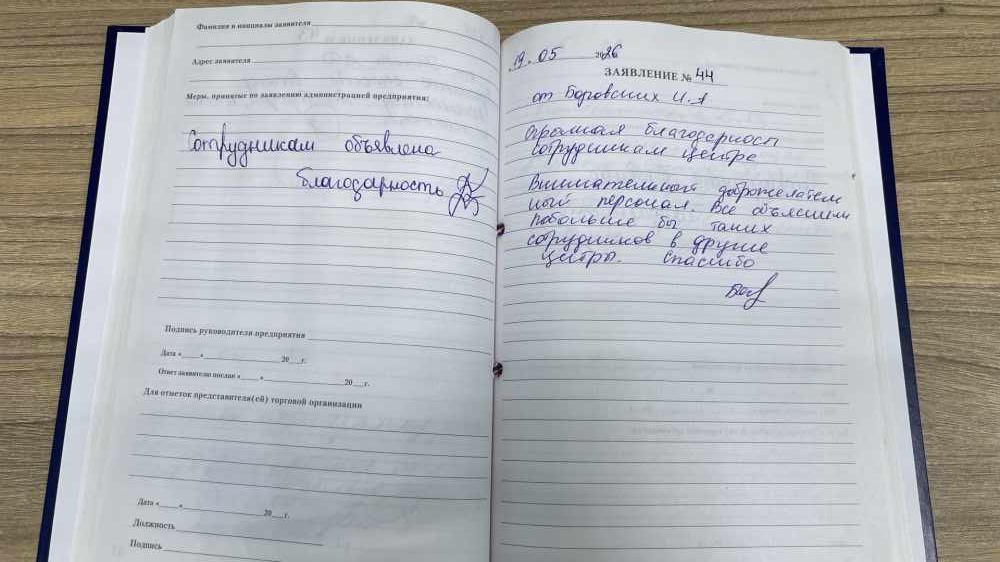 Фамилия и инициалы заявителя
Адрес заявителя
Меры, принятые по заявлению администрацией предприятия:
Сотрудникам объявлена
благодарность
Подпись руководителя предприятия
Дата «__»__ 20__г.
Ответ заявителю послан «__»__ 20__г.
Для отметок представителя(ей) торговой организации
Дата «__»__ 20__г.
Должность
Подпись
19.05 2026
ЗАЯВЛЕНИЕ № 44
от Боровских И.А
Огромная благодарност
сотрудникам центре
Внимательный доброжелателн
ный персонал. Все объяснили
побольше бы таких
сотрудников в другие
центры. Спасибо